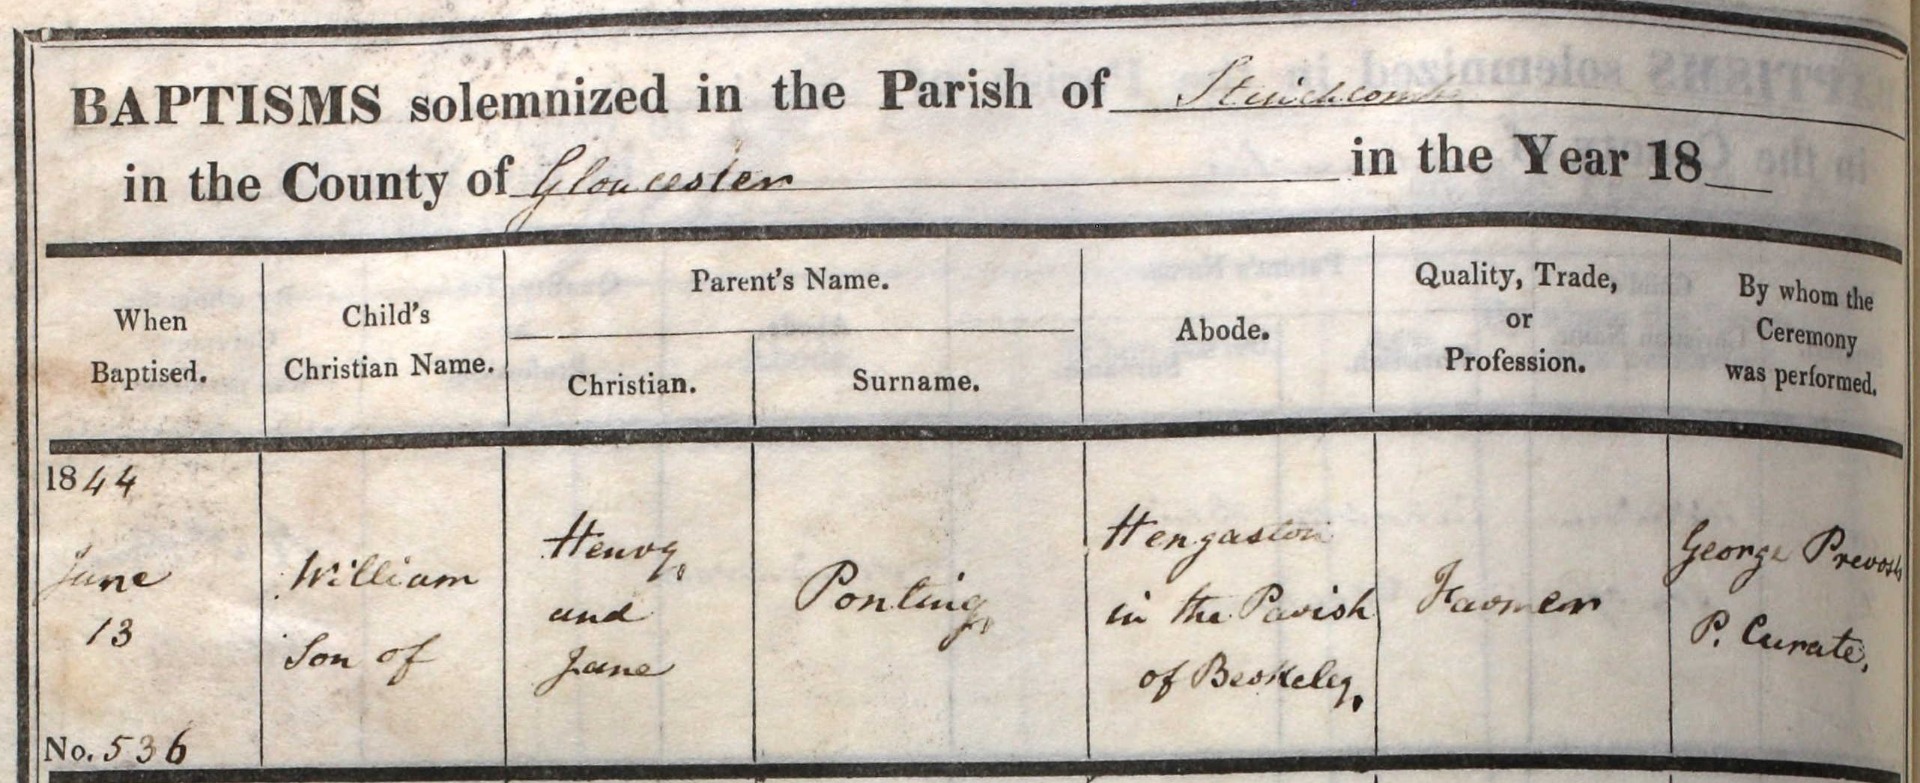 BAPTISMS solemnized in the Parish of Stinchcombe
in the County of Gloucester in the Year 18
When
Baptised.
Child's
Christian Name.
Parent's Name.
Christian.
Surname.
Abode.
Quality, Trade,
or
Profession.
By whom the
Ceremony
was performed.
1844
June
13
No. 536
William
Son of
Henry,
and
Jane
Ponting,
Hengaston
in the Parish
of Berkeley,
Farmer
George Prevost
P. Curate,